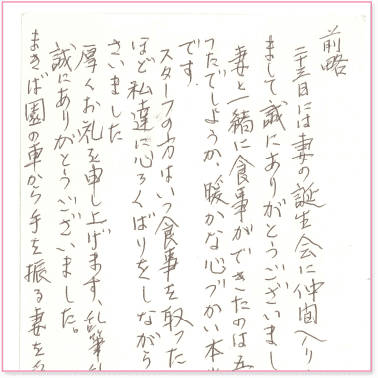 前略
二十三日には妻の誕生会に仲間入り
まして誠にありがとうございまし
妻と一緒に食事ができたのは五
つたでしようか、暖かな心づかい本当
です。
スタッフの方はいつ食事を取った
ほど私達に心くばりをしながら
さいました
厚くお礼を申し上げます、乱筆
誠にありがとうございました。
まきば園の車から手を振る妻を